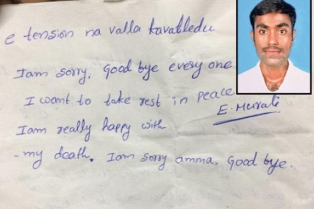 e tension na valla kavatledu
Iam sorry. Good bye every one
I want to take rest in peace
E. Murali
Iam really happy with
my death. Iam sorry amma, Good bye.